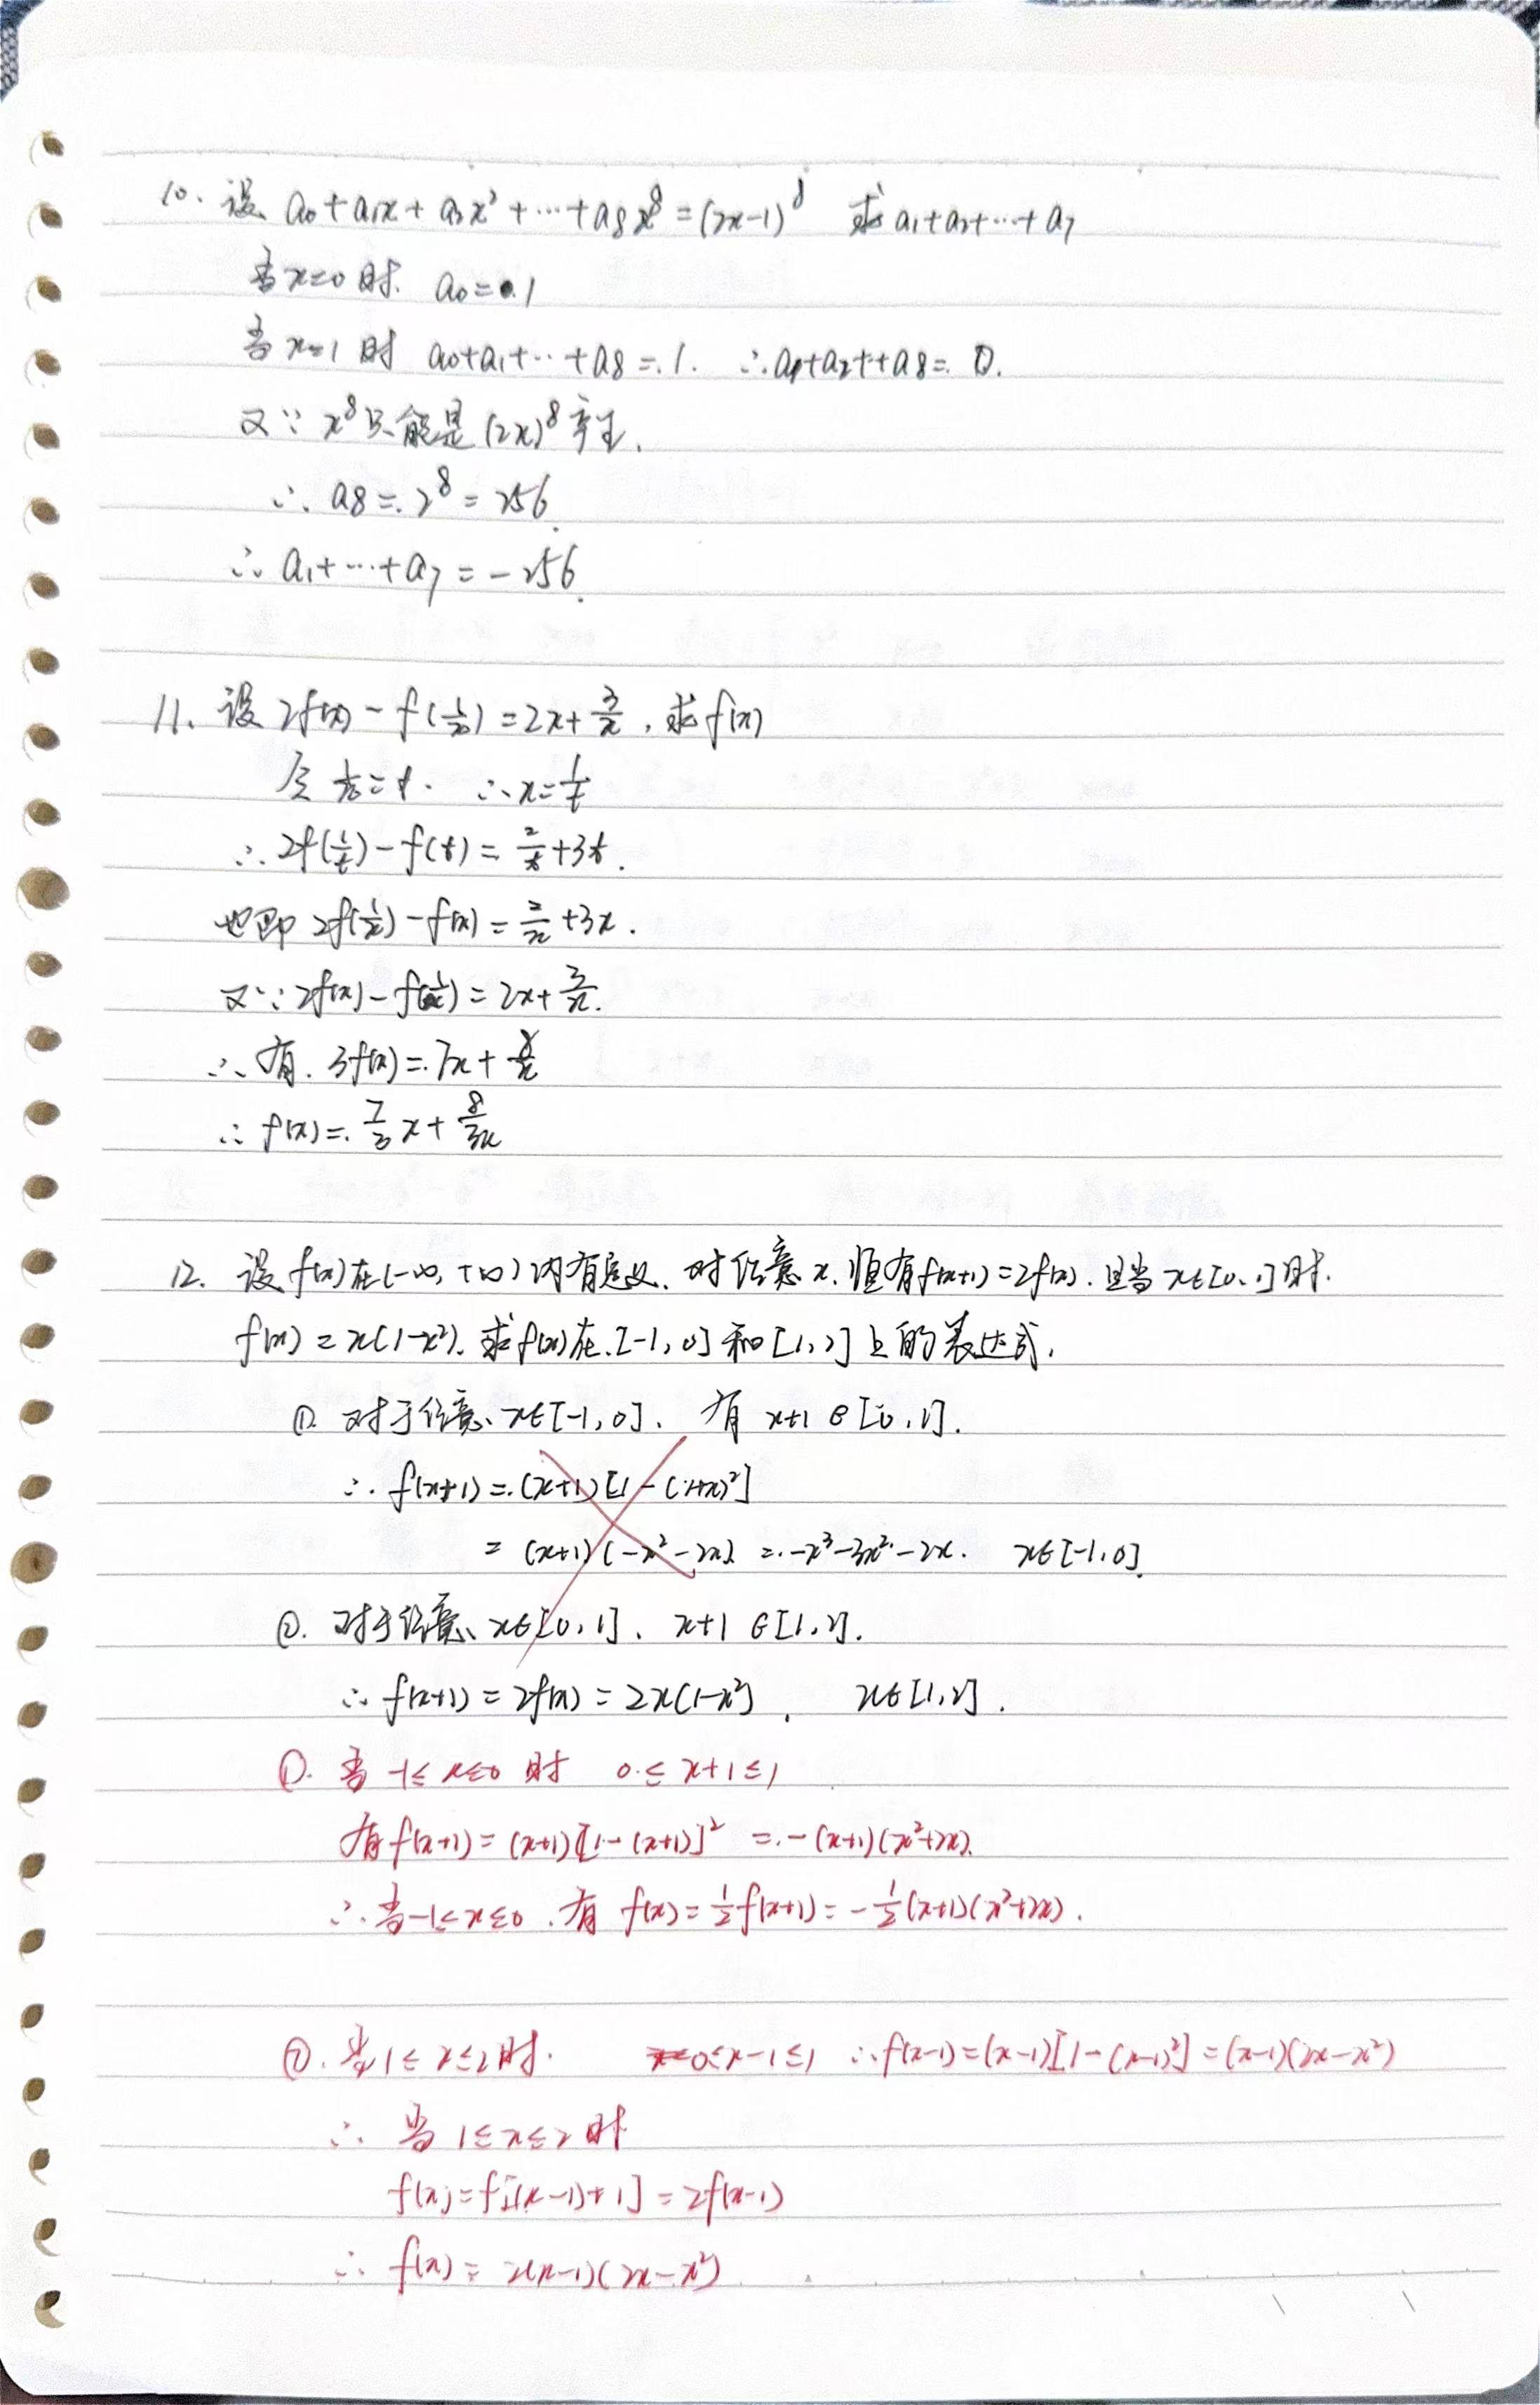 10. 设 a₀+a₁x+a₃x²+…+a₈x⁸=(2x-1)⁸ 求a₁+a₂+…+a₇
当x=0时. a₀=1
当x=1时 a₀+a₁+…+a₈=1. ∴a₁+a₂++a₈=0.
又∵ x⁸只能是(2x)⁸产生.
∴ a₈=2⁸=256.
∴ a₁+…+a₇=-256.
11. 设2f(x)-f(1/x)=2x+3/x, 求f(x)
令1/x=t. ∴x=1/t
∴2f(1/t)-f(t)=2/t+3t.
也即 2f(1/x)-f(x)=2/x+3x.
又∵2f(x)-f(1/x)=2x+3/x.
∴有. 3f(x)=7x+8/x
∴ f(x)=7/3x+8/3x
12. 设f(x)在(-∞,+∞)内有定义. 对任意x. 恒有f(x+1)=2f(x). 且当x∈[0,1]时.
f(x)=x(1-x²). 求f(x)在[-1,0]和[1,2]上的表达式.
①. 对于任意x∈[-1,0]. 有 x+1∈[0,1].
∴ f(x+1)=(x+1)[1-(1+x)²]
=(x+1)(-x²-2x)=-x³-3x²-2x. x∈[-1,0].
②. 对于任意x∈[0,1]. x+1∈[1,2].
∴ f(x+1)=2f(x)=2x(1-x²), x∈[1,2].
①. 当-1≤x≤0时 0≤x+1≤1
有f(x+1)=(x+1)[1-(x+1)]²=-(x+1)(x²+2x).
∴当-1≤x≤0. 有 f(x)=1/2f(x+1)=-1/2(x+1)(x²+2x).
②. 当1≤x≤2时. 0≤x-1≤1 ∴f(x-1)=(x-1)[1-(x-1)²]=(x-1)(2x-x²)
∴ 当1≤x≤2时
f(x)=f[(x-1)+1]=2f(x-1)
∴ f(x)=2(x-1)(2x-x²)